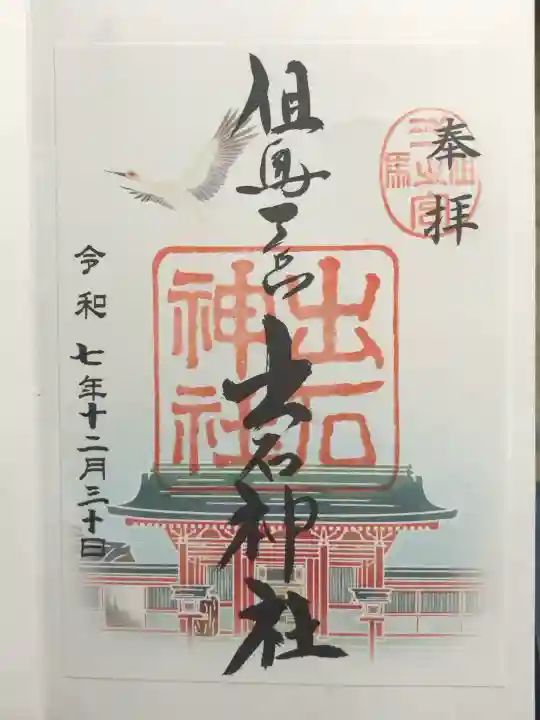 奉拝
但馬一宮
但馬一宮 出石神社
出石神社
令和七年十二月三十日